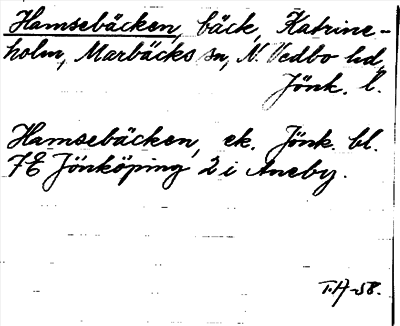 Hamsebäcken, bäck, Katrine-
holm, Marbäcks sn, N. Vedbo hd,
Jönk. l.
Hamsebäcken, ek. Jönk. bl.
7E Jönköping 2 i Aneby.
T.H-58.